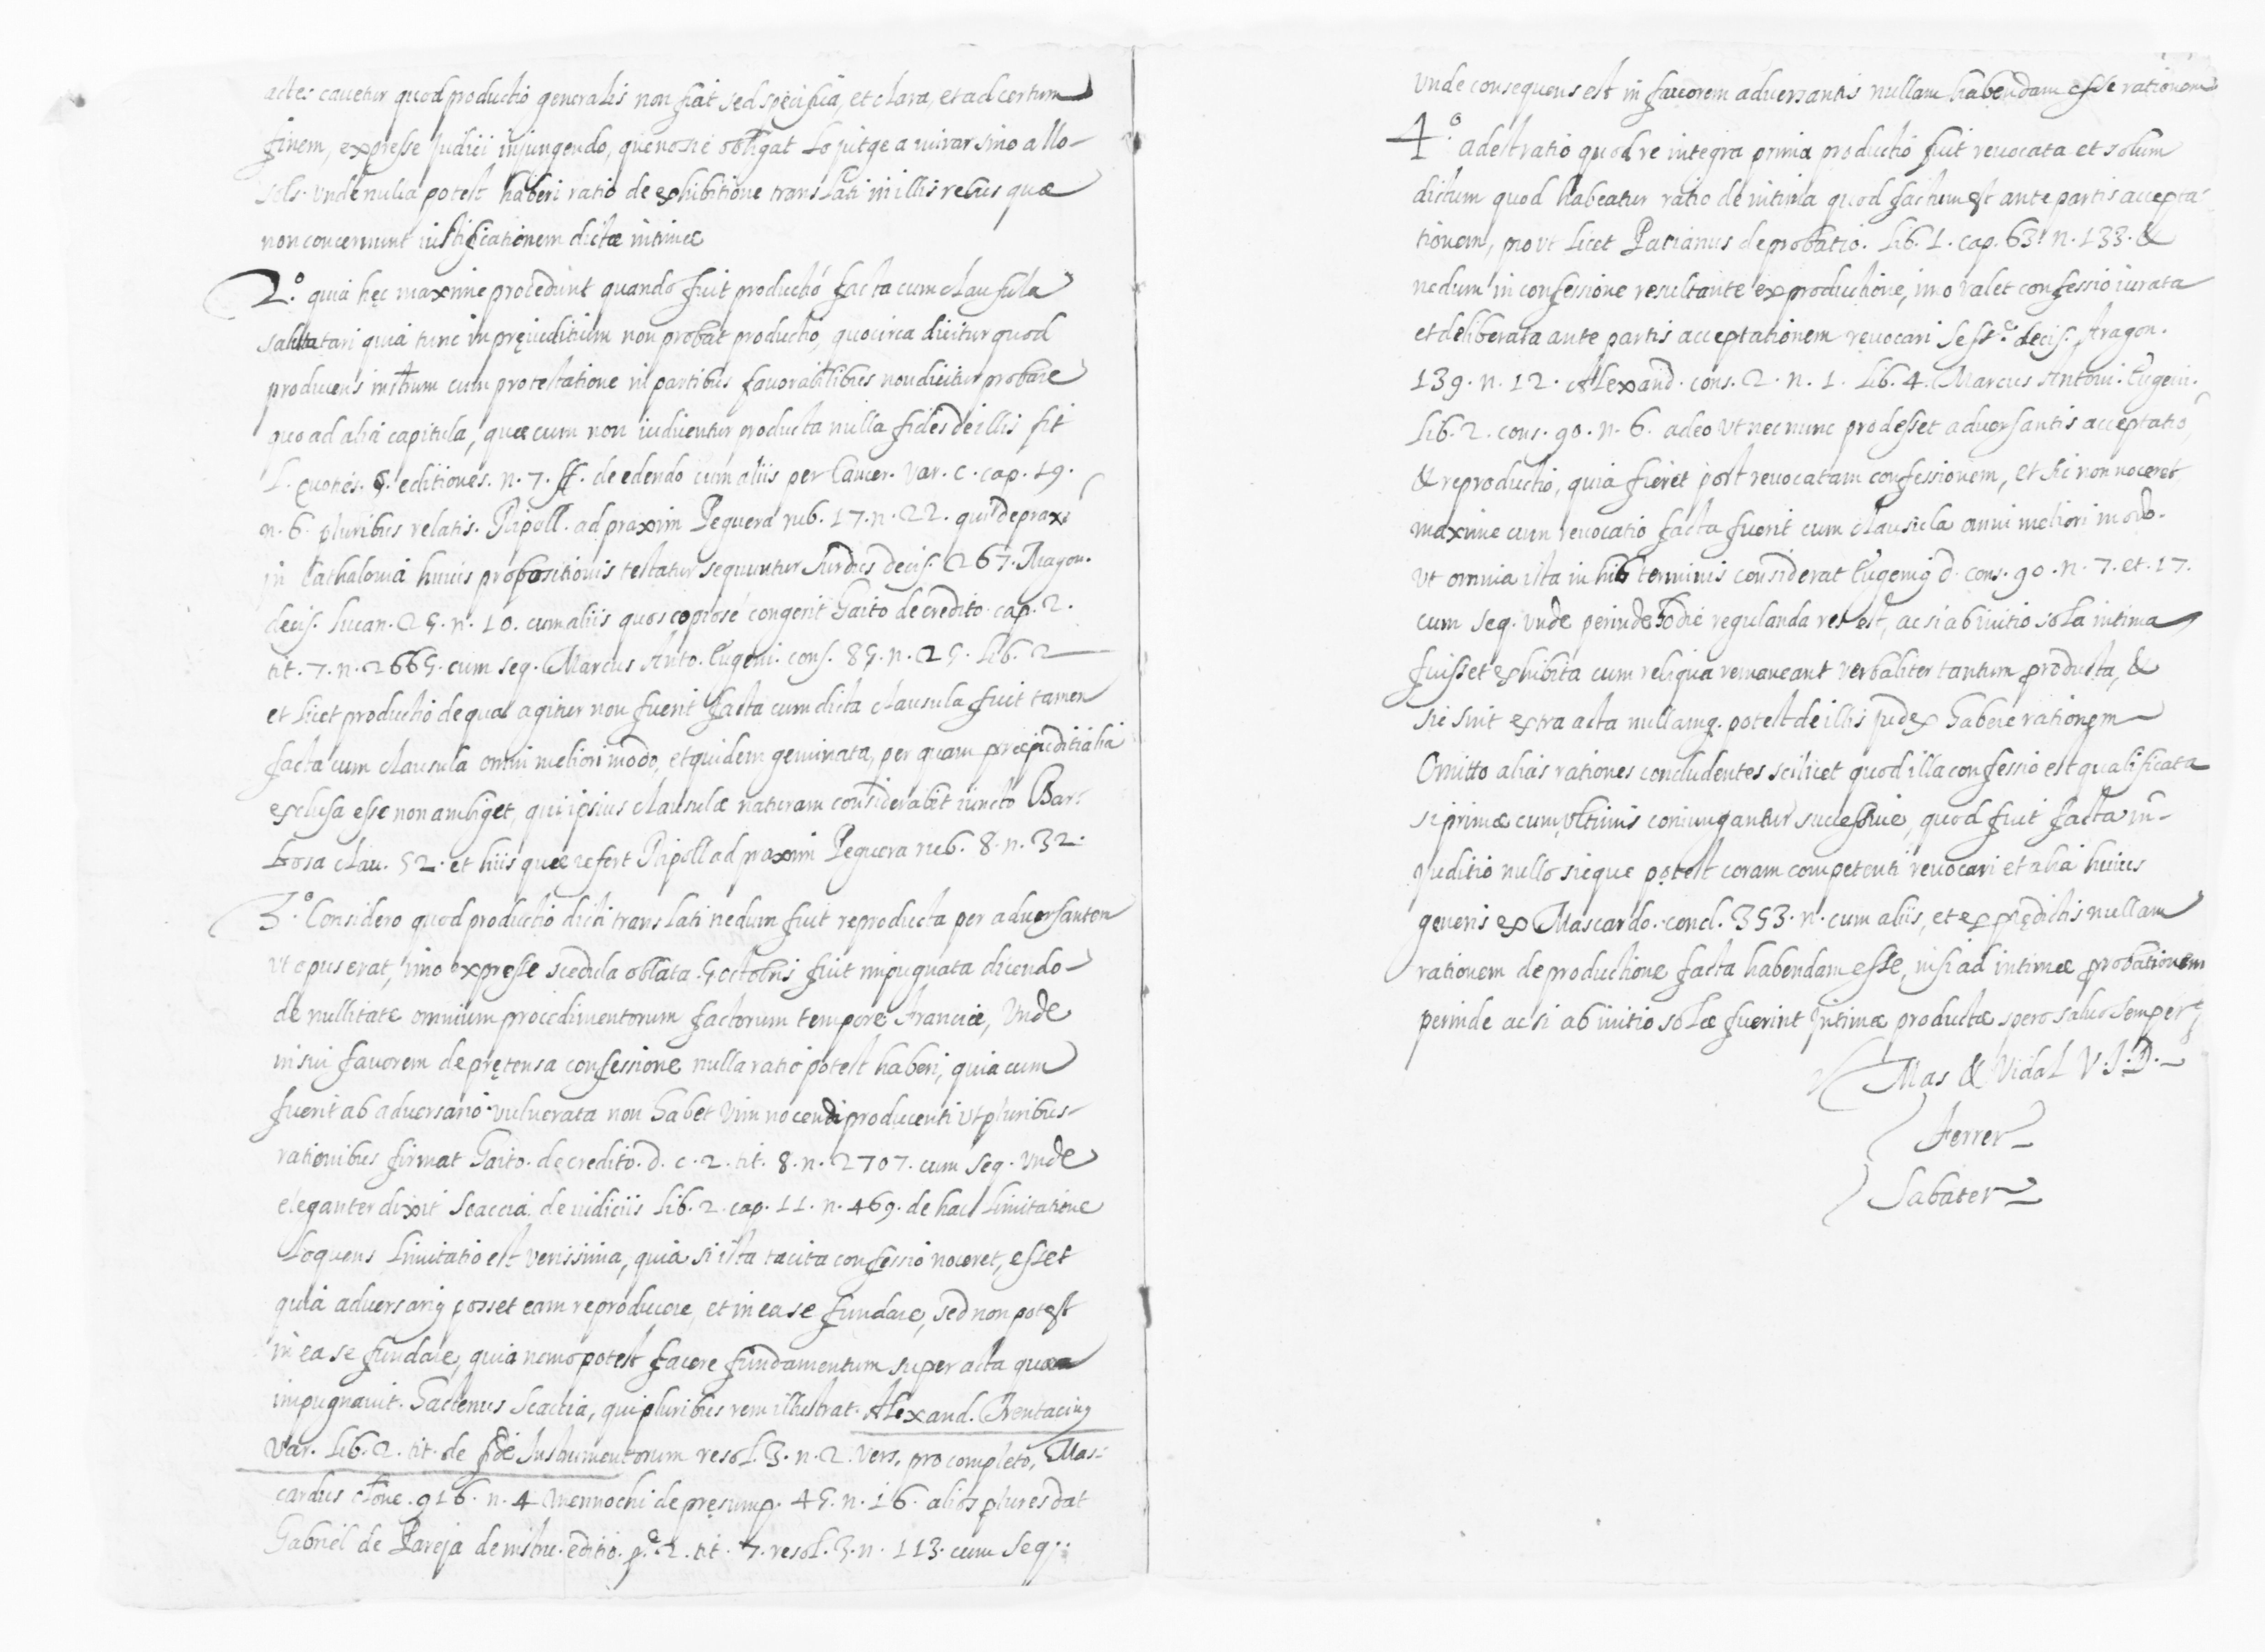 actes cauetur quod productio generalis non fiat sed specifica, et clara, et ad certum
finem, expresse judici injungendo, que nos sie obligat lo jutge a mirar sino allo
sols. Unde nulla potest haberi ratio de exhibitione translati in illis rebus quæ
non concernunt iustificationem dictæ intimæ
2.º quia hęc maxime procedunt quando fuit productio facta cum clausula
salutari quia tunc in pręiuditium non probat productio, quocirca dicitur quod
producens instrum cum protestatione in partibus favorabilibus non dicitur probare
quo ad alia capitula, quæ cum non iudicentur producta nulla fides de illis fit
L. quoties. §. editiones. n. 7. ff. de edendo cum aliis per Cancer. Var. c. cap. 19.
n. 6. pluribus relatis. Ripoll. ad praxim Peguera rub. 17. n. 22. qui de praxi
in Cathalonia huius propositionis testatur sequuntur Surdus decis. 267. Aragon.
decis. lucan. 25. n. 10. cum aliis quos copiosé congerit Gaito de credito. cap. 2.
tit. 7. n. 2665. cum seq. Marcus Anto. Eugeni. cons. 85. n. 25. lib. 2
et licet productio de qua agitur non fuerit facta cum dicta clausula fuit tamen
facta cum clausula omni meliori modo, et quidem geminata, per quam præjuditialia
exclusa esse non ambiget, qui ipsius clausulæ naturam considerabit iuncto Bar-
bosa clau. 52. et hiis quæ refert Ripoll ad praxim Peguera rub. 8. n. 32.
3.º Considero quod productio dicti translati nedum fuit reproducta per adversantem
ut opus erat, imo expresse scedula oblata 5 octobris fuit impugnata dicendo
de nullitate omnium procedimentorum factorum tempore Franciæ, Unde
in sui favorem de prętensa confessione nulla ratio potest haberi, quia cum
fuerit ab adversario vulnerata non habet vim nocendi producenti ut pluribus
rationibus firmat Gaito. de credito. d. c. 2. tit. 8. n. 2707. cum seq. Unde
eleganter dixit Scaccia de iudiciis lib. 2. cap. 11. n. 469. de hac limitatione
loquens limitatio est verissima, quia si ista tacita confessio noceret, esset
quia adversarių posset eam reproducere, et in ea se fundare, sed non potest
in ea se fundare, quia nemo potest facere fundamentum super acta quæ
impugnauit. Hactenus Scaccia, qui pluribus rem illustrat. Alexand. Trentacinų
Var. lib. 2. tit. de fide Instrumentorum resol. 3. n. 2. vers. pro completo, Mas-
cardus clone. 916. n. 4 Mennochi de pręsump. 45. n. 16. alios plures dat
Gabriel de Pareja de instru. editio. p.e 2. tit. 7. resol. 3. n. 113. cum seq.
Unde consequens est in favorem adversantis nullam habendam esse rationem
4.º adest ratio quod re integra prima productio fuit revocata et solum
dictum quod habeatur ratio de intima quod factum est ante partis accepta-
tionem, prout licet Parianus de probatio. lib. 1. cap. 63. n. 133. &
nedum in confessione resultante ex productione, imo valet confessio iurata
et deliberata ante partis acceptationem revocari Sesse decis. Aragon.
139. n. 12. Alexand. cons. 2. n. 1. lib. 4. Marcus Antoni. Eugeni.
lib. 2. cons. 90. n. 6. adeo ut nec nunc prodesset adversantis acceptatio,
& reproductio, quia fieret post revocatam confessionem, et sic non noceret
maxime cum revocatio facta fuerit cum clausula omni meliori modo.
ut omnia ista in his terminis considerat Eugenių d. cons. 90. n. 7. et 17.
cum seq. Unde perinde hodie regulanda res est, ac si ab initio sola intima
fuisset exhibita cum reliqua remaneant verbaliter tantum producta, &
sic sint extra acta nullamq. potest de illis judex habere rationem
Omitto alias rationes concludentes scilicet quod illa confessio est qualificata
si primæ cum ultimis coniungantur successive, quod fuit facta in
juditio nullo sicque potest coram competenti revocari et alia huius
generis ex Mascardo. concl. 353. n. cum aliis, et ex prędictis nullam
rationem de productione facta habendam esse, nisi ad intimæ probationem
perinde ac si ab initio solæ fuerint Intimæ productæ spero salvo semper
Mas & Vidal V.J.D.
Ferrer
Sabater